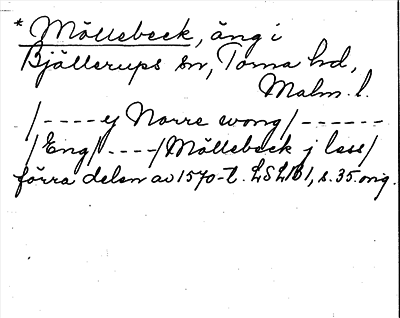 * Möllebeck, äng i
Bjällerups sn, Torna hd,
Malm. l.
/----ej Norre wong/------
/Eng/----/Möllebeck j lass/
förra delen av 1570-t. LSLIB1, s. 35. orig.